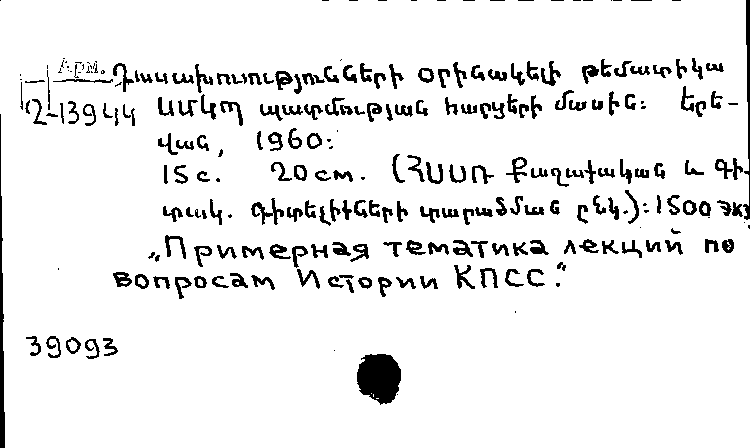 Арм.
Դասախոսությունների օրինակելի թեմատիկա
2-13944 ՍՄԿՊ պատմության հարցերի մասին: Երե-
վան, 1960:
15с. 20см. (ՀՍՍՌ Քաղաքական և գի-
տակ. գիտելիքների տարածման ընկ.): 1500 экз
„Примерная тематика лекций по
вопросам Истории КПСС."
39093